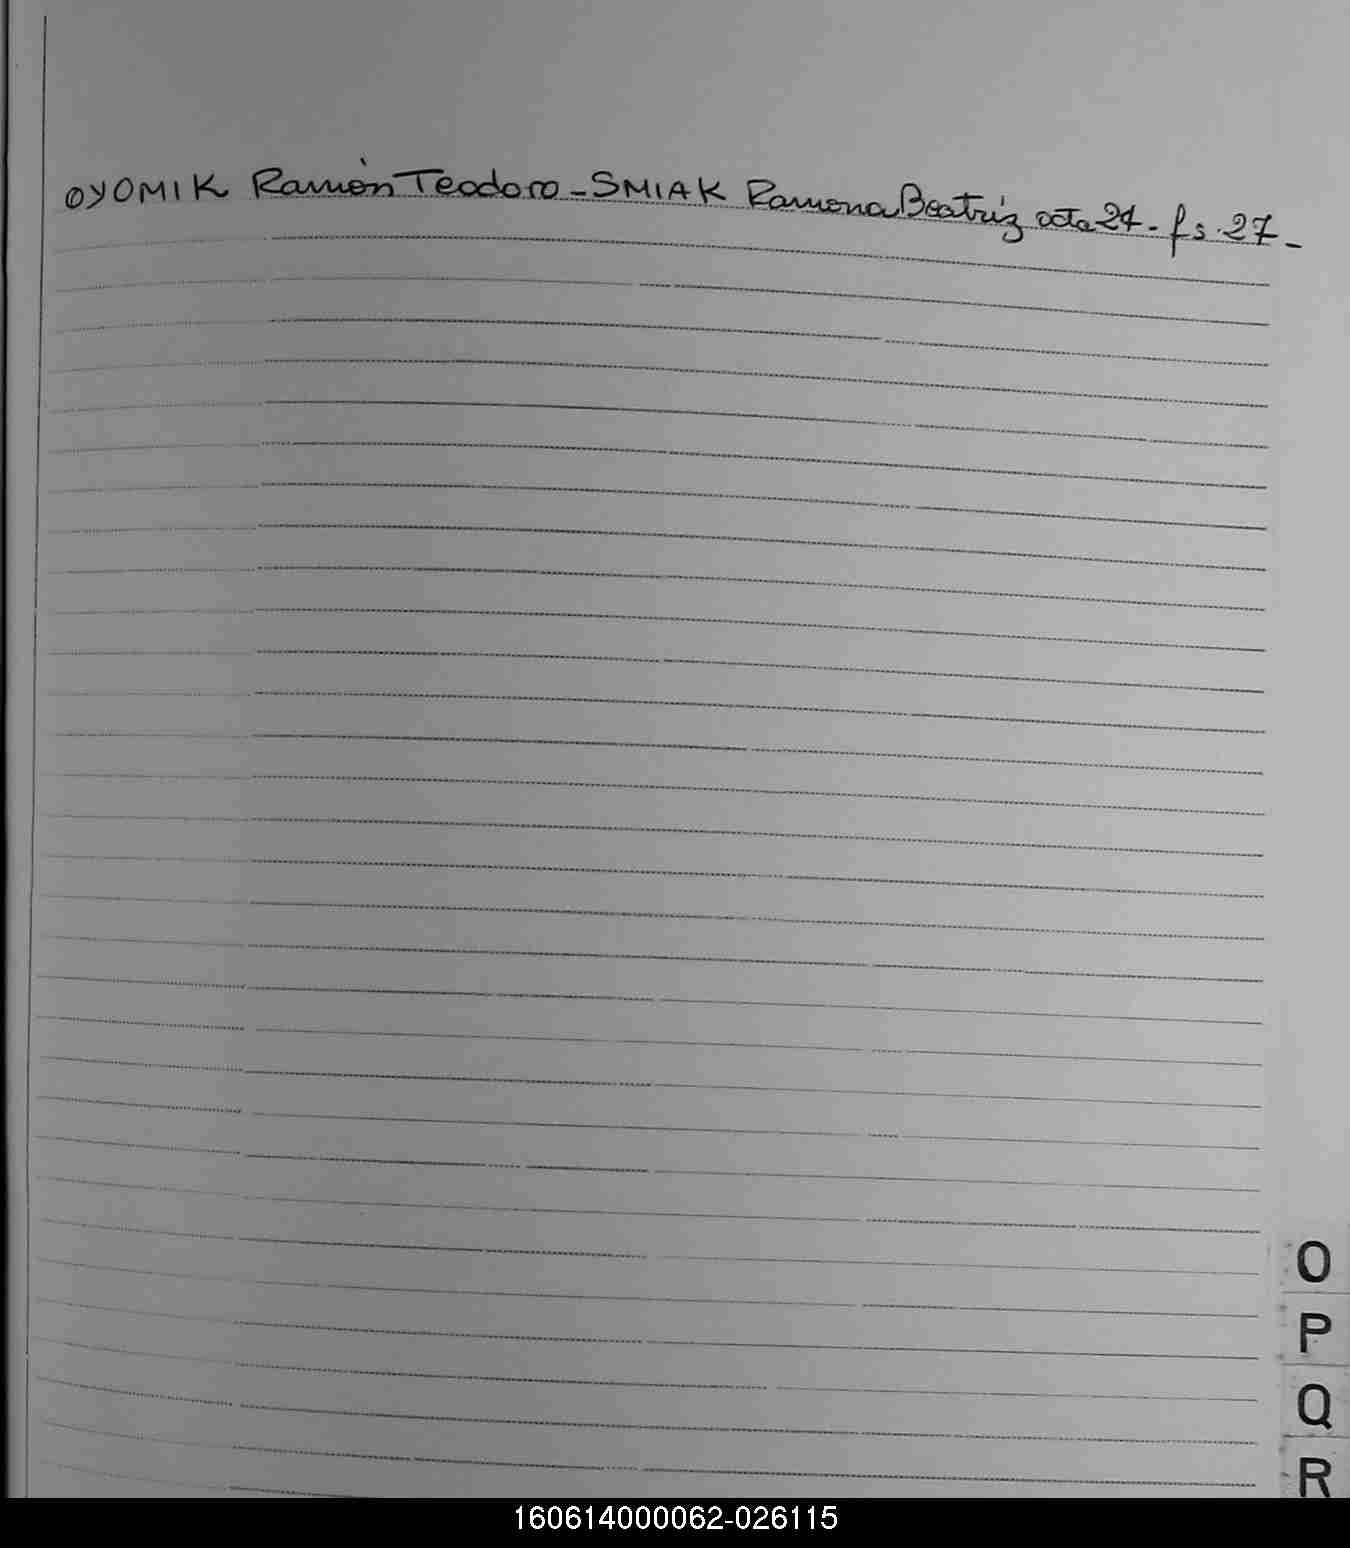 OYOMIK Ramón Teodoro - SMIAK Ramona Beatriz acta 24 - fs. 27 -
O
P
Q
R
160614000062-026115